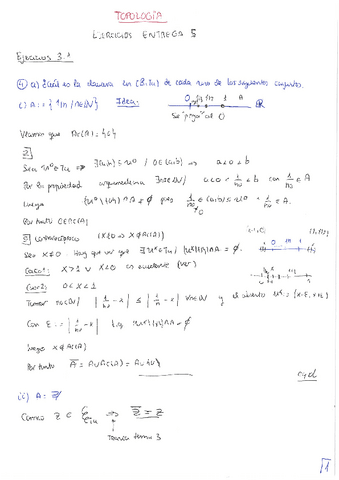 TOPOLOGÍA
EJERCICIOS ENTREGA 5
Ejercicios 3.
④ a) ¿Cuál es la clausura en (ℝ, Tu) de cada uno de los siguientes conjuntos.
i) A := {1/n / n∈ℕ} Idea:
Se "pega" al 0
Veamos que Ac(A) = {0}
⊇
Sea 𝒰⁰ ∈ Tu ⇒ ∃(a,b) ⊆ 𝒰⁰ / 0∈(a,b) ⇒ a<0<b
Por la propiedad arquimediana ∃n₀∈ℕ / a<0< 1/n₀ <b con 1/n₀ ∈ A
Luego (𝒰⁰\{0}) ∩ A ≠ ∅ pues 1/n₀ ∈ (a,b) ⊆ 𝒰⁰ 1/n₀ ∈ A.
Por tanto 0∈Ac(A)
⊆ (x≠0 ⇒ x∉Ac(A))
Sea x≠0. Hay que ver que ∃ 𝒰ˣ∈Tu / (𝒰ˣ\{x}) ∩ A = ∅.
Caso 1: x>1 ∨ x<0 es evidente (ver)
Caso 2: 0<x<1
Tomar n₀∈ℕ / |1/n₀ - x| ≤ |1/n - x| ∀n∈ℕ y el abierto 𝒰ˣ = (x-ε, x+ε)
Con ε := |1/n₀ - x| (𝒰ˣ\{x}) ∩ A = ∅
Luego x∉Ac(A)
Por tanto Ā = A∪Ac(A) = A∪{0}
cqd
ii) A = ℤ
Como ℤ ∈ ⇒ ℤ̄ = ℤ
tema 3
1